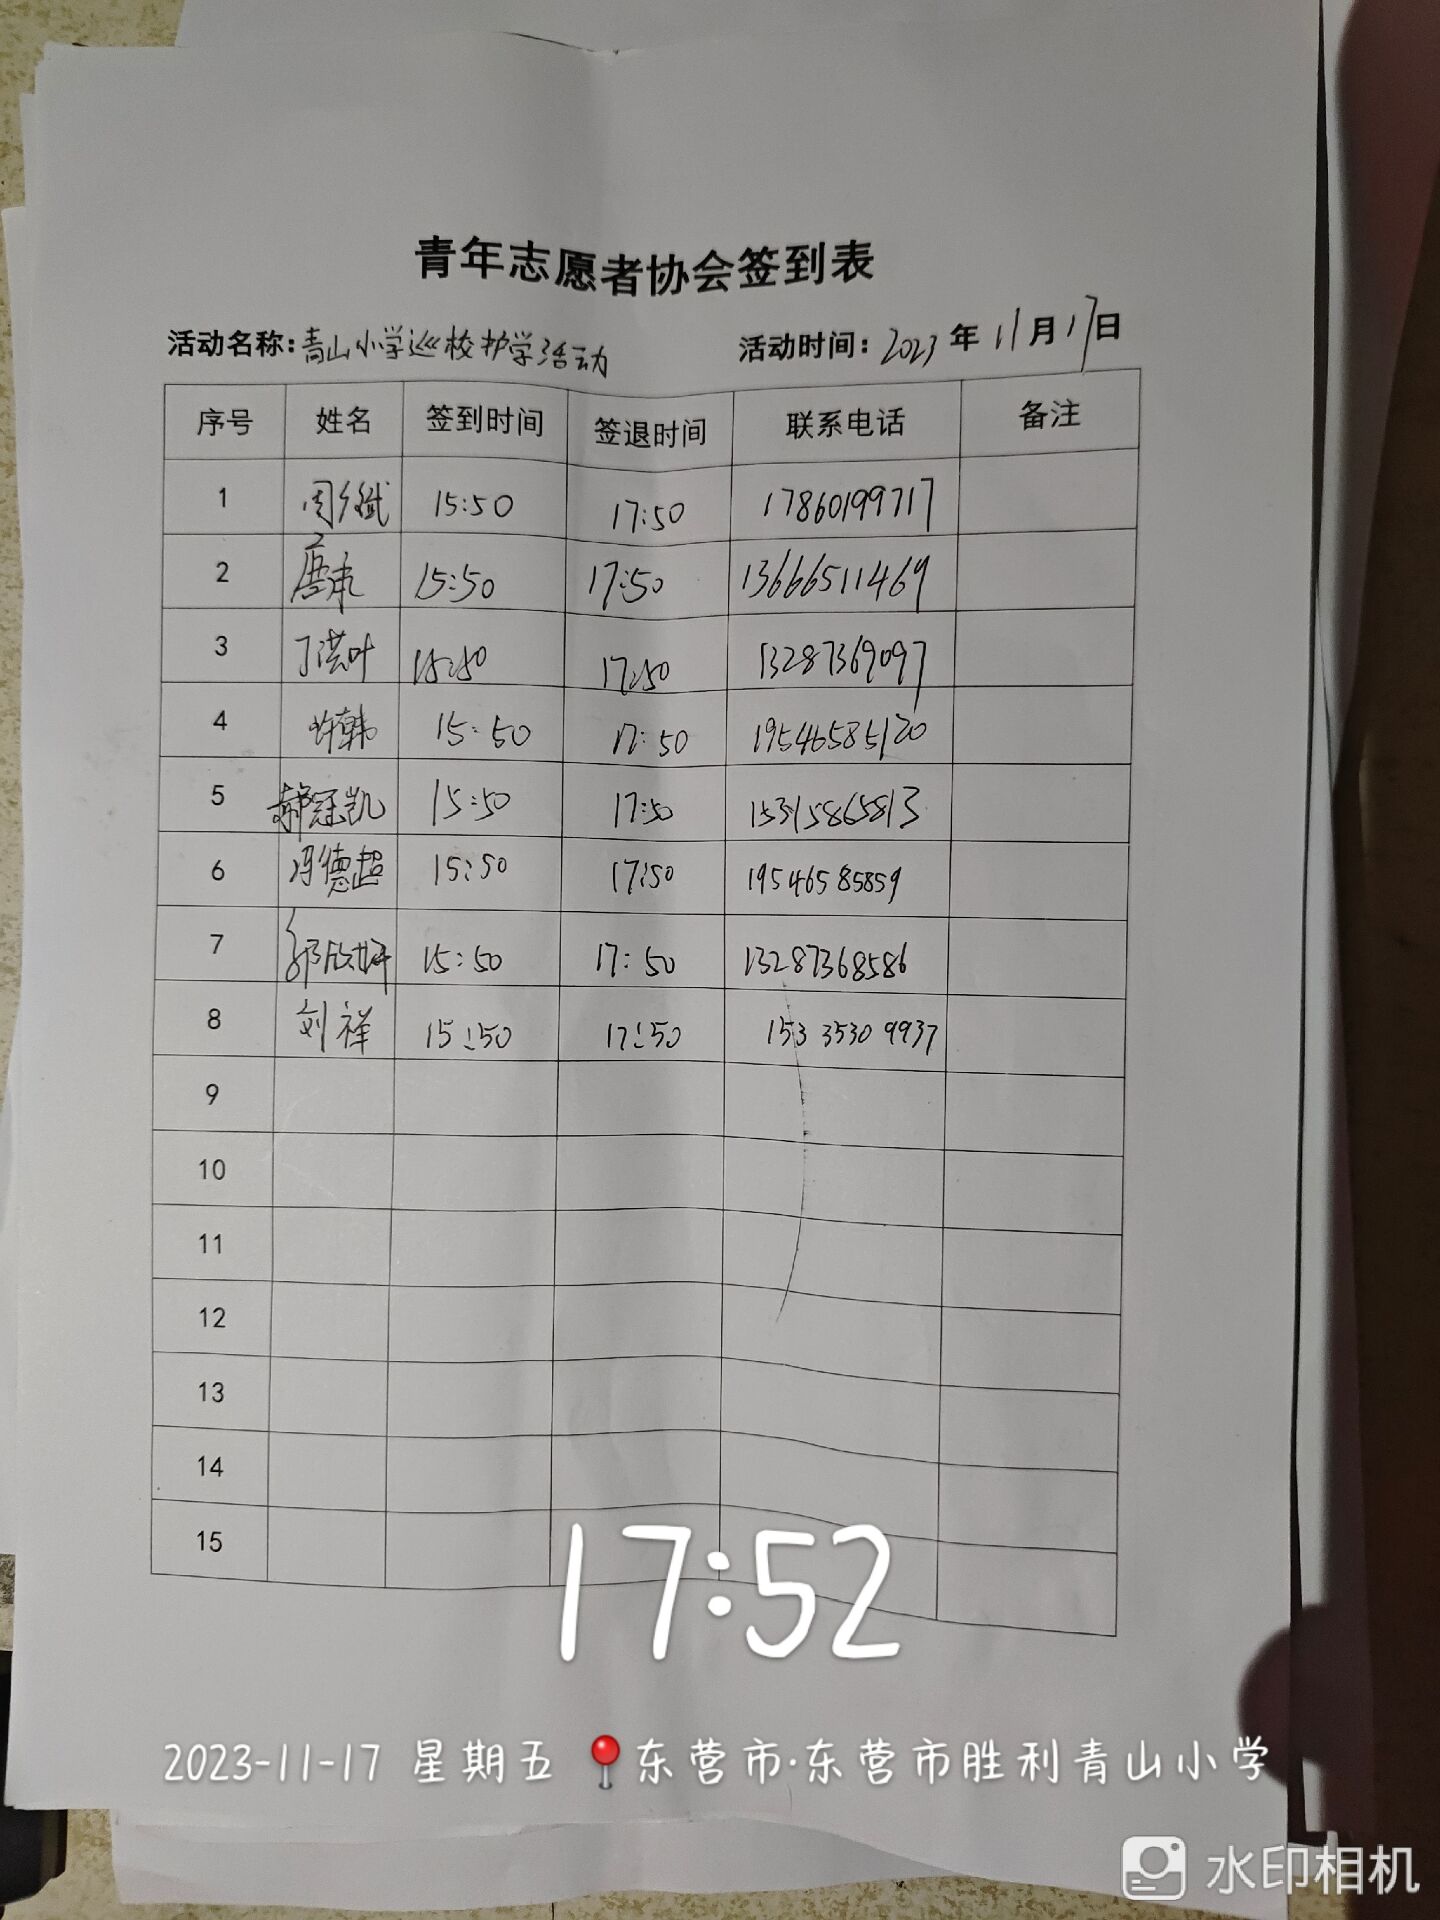 青年志愿者协会签到表
活动名称:青山小学巡校护学活动 活动时间: 2023 年 11 月 17 日
序号 姓名 签到时间 签退时间 联系电话 备注
1 周 15:50 17:50 17860199717
2 唐 15:50 17:50 13666511469
3 丁洪叶 15:50 17:50 13287369097
4 许韩 15:50 17:50 19546585120
5 郝冠凯 15:50 17:50 15315865813
6 冯德超 15:50 17:50 19546585859
7 郭欣妍 15:50 17:50 13287368586
8 刘祥 15:50 17:50 153 3530 9937
9
10
11
12
13
14
15
17:52
2023-11-17 星期五 东营市·东营市胜利青山小学
水印相机